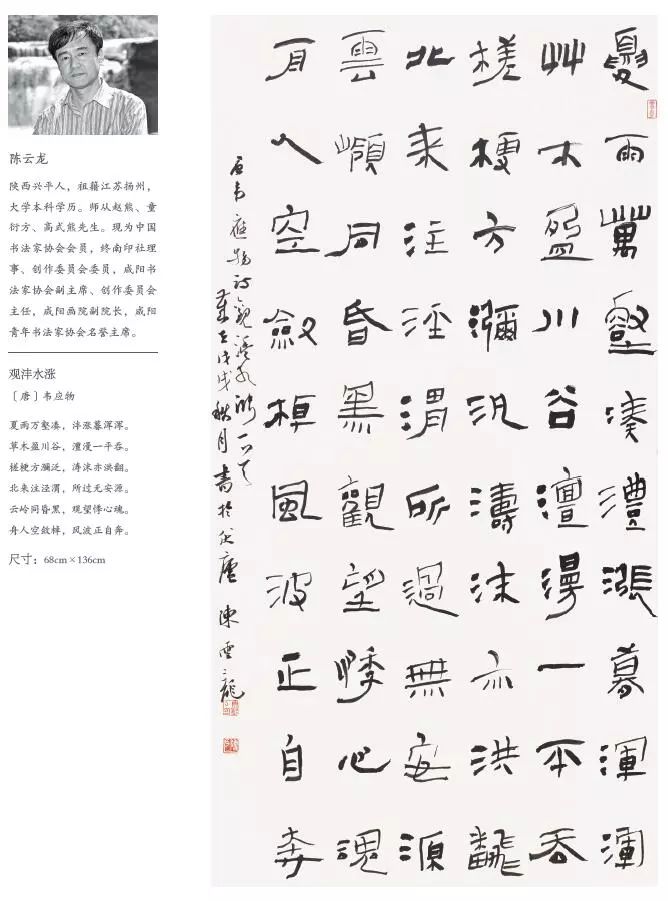 陈云龙
陕西兴平人，祖籍江苏扬州，
大学本科学历。师从赵熊、童
衍方、高式熊先生。现为中国
书法家协会会员，终南印社理
事、创作委员会委员，咸阳书
法家协会副主席、创作委员会
主任，咸阳画院副院长，咸阳
青年书法家协会名誉主席。
观沣水涨
〔唐〕韦应物
夏雨万壑凑，沣涨暮浑浑。
草木盈川谷，澶漫一平吞。
槎梗方瀰泛，涛沫亦洪翻。
北来注泾渭，所过无安源。
云岭同昏黑，观望悸心魂。
舟人空敛棹，风波正自奔。
尺寸：68cm×136cm
夏雨萬壑湊澧漲暮渾渾
艸木盈川谷澶漫一平吞
槎梗方瀰汎濤沫亦洪飜
北来注涇渭所過無安源
雲嶺同昏黑觀望悸心魂
舟人空斂棹風波正自奔
唐韋應物詩觀灃水漲一首
歲在戊戌秋月書於廬陳雲龍